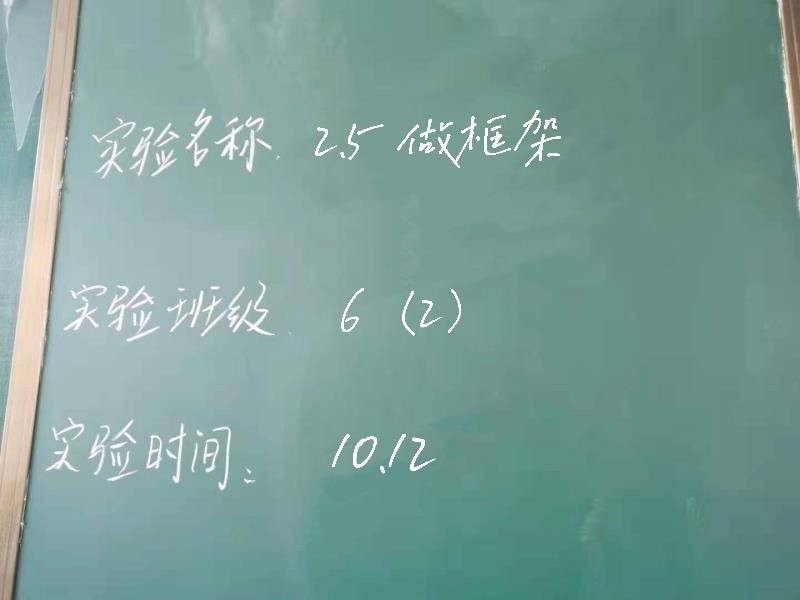 实验名称: 2.5 做框架
实验班级: 6 (2)
实验时间: 10.12